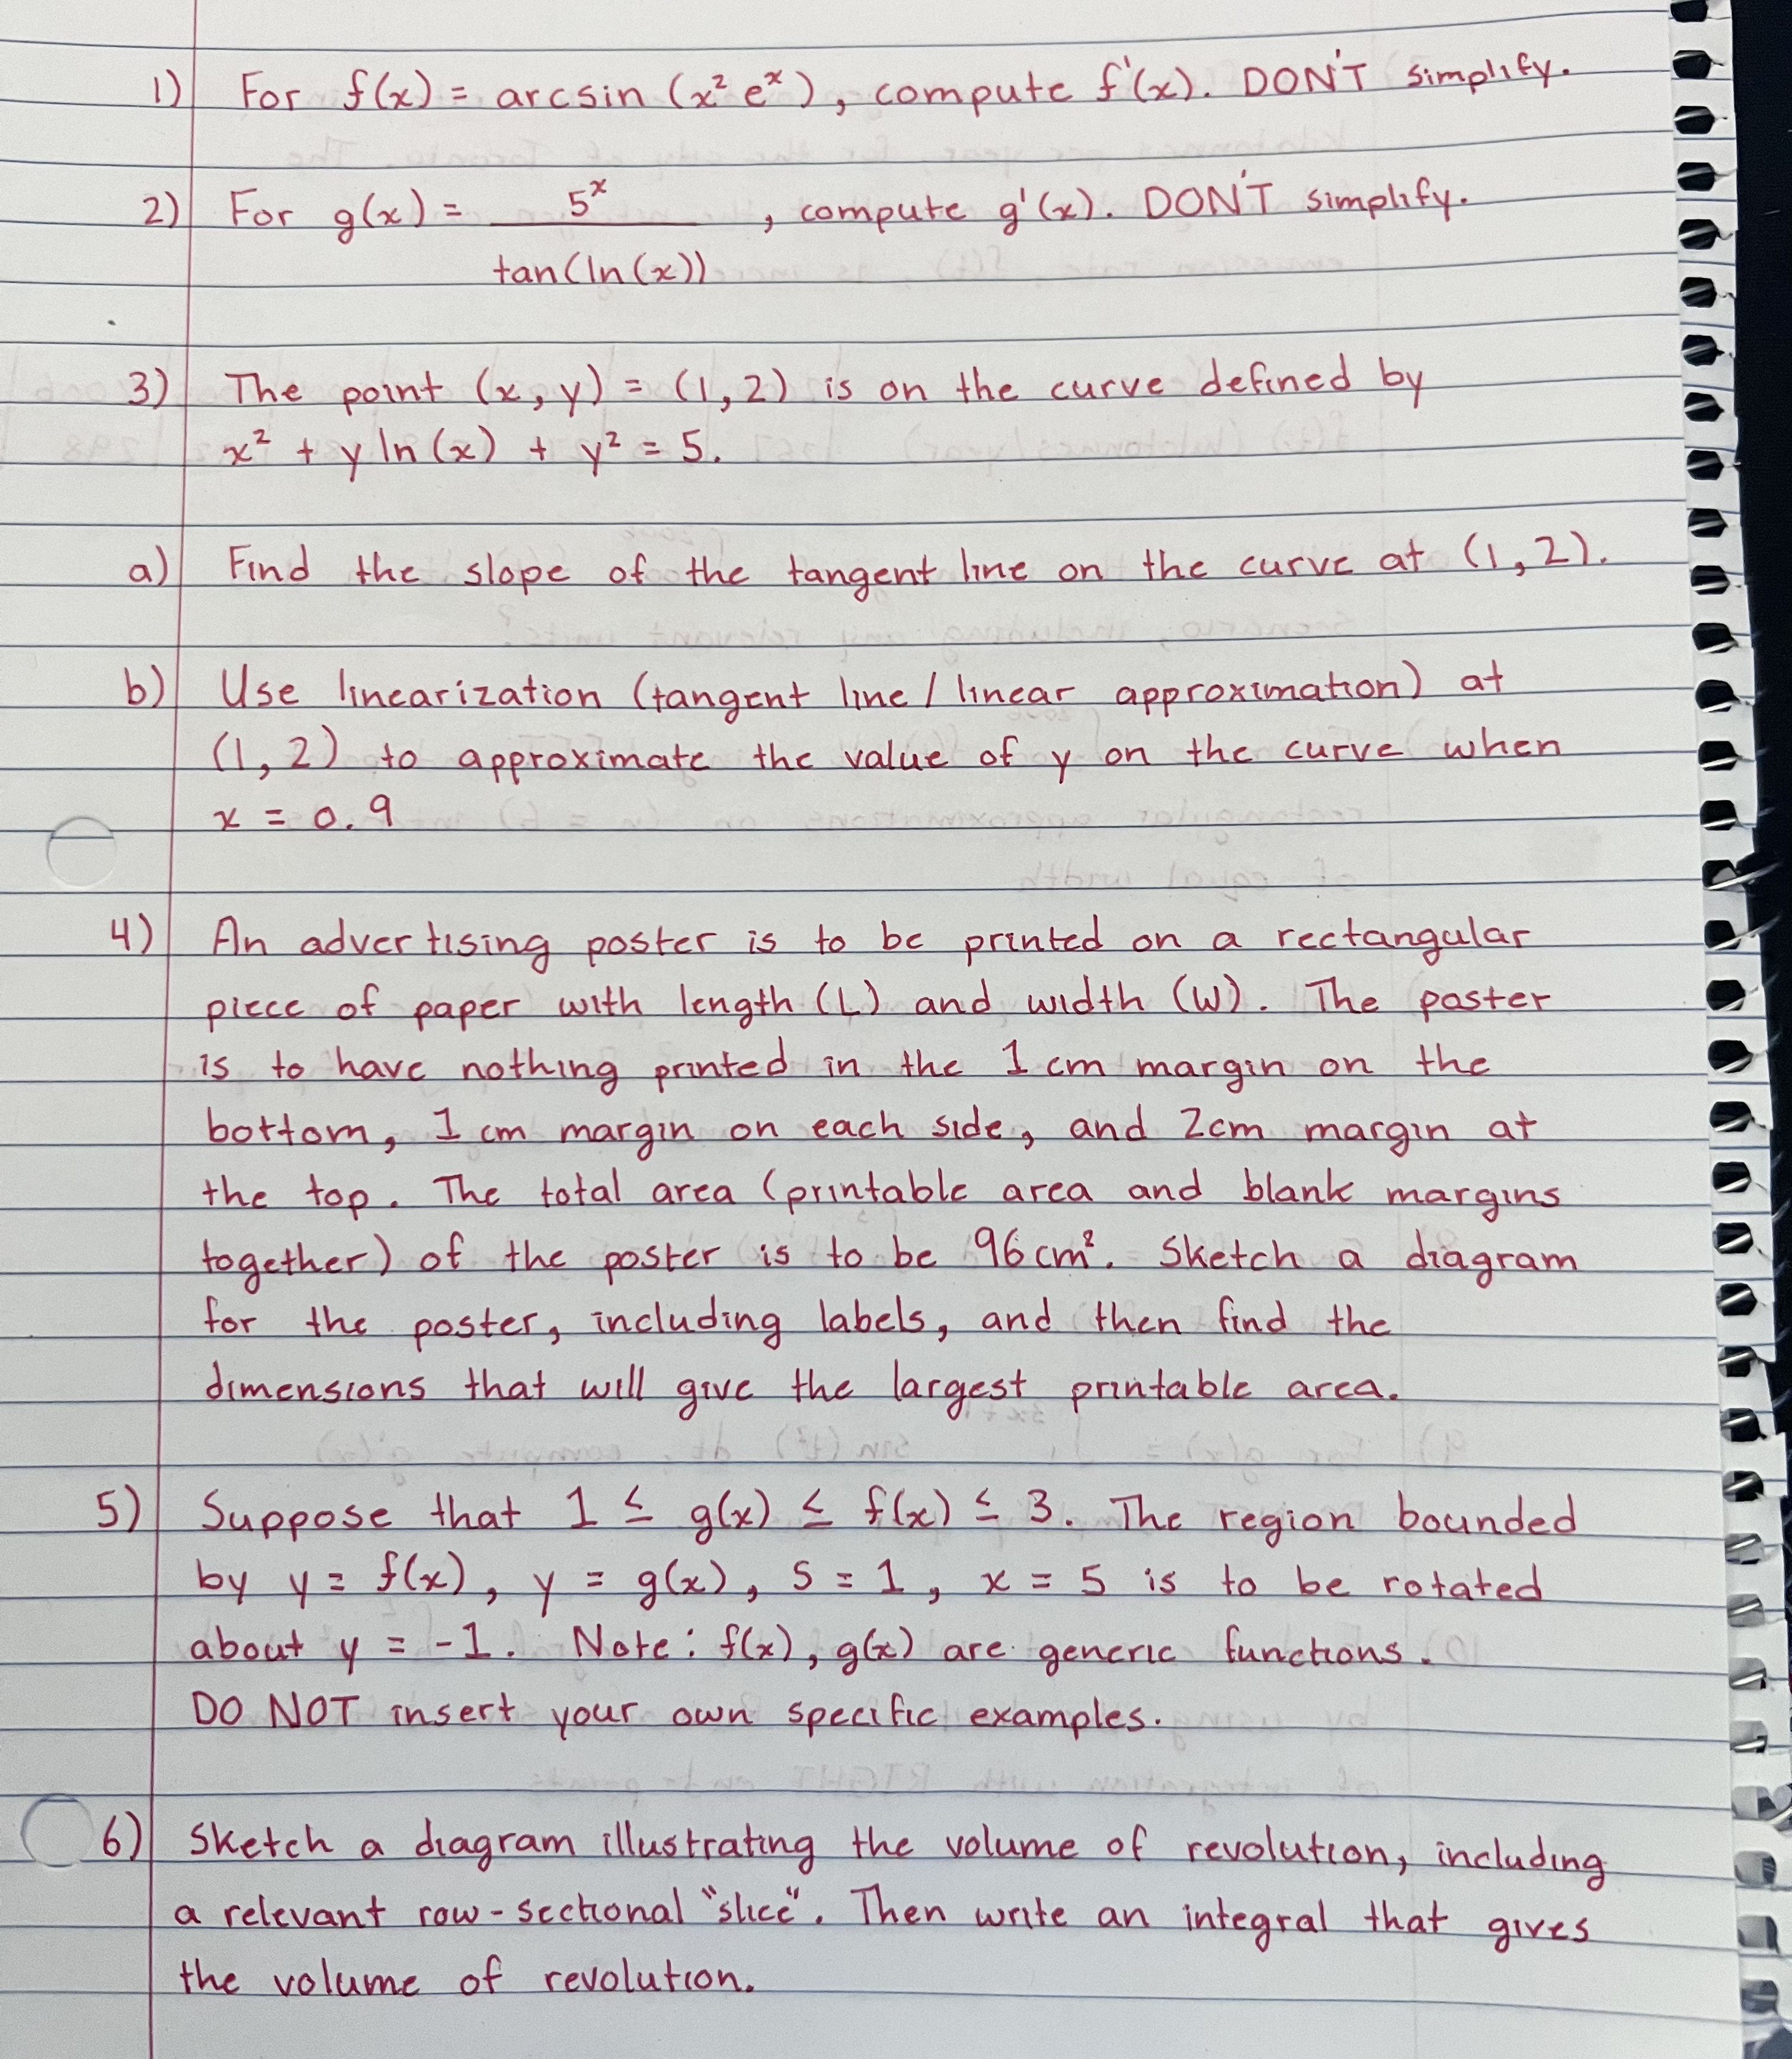 1) For f(x) = arcsin (x² eˣ), compute f'(x). DON'T simplify.
2) For g(x) = 5ˣ / tan(ln(x)), compute g'(x). DON'T simplify.
3) The point (x, y) = (1, 2) is on the curve defined by
x² + y ln (x) + y² = 5.
a) Find the slope of the tangent line on the curve at (1, 2).
b) Use linearization (tangent line / linear approximation) at
(1, 2) to approximate the value of y on the curve when
x = 0.9
4) An advertising poster is to be printed on a rectangular
piece of paper with length (L) and width (W). The poster
is to have nothing printed in the 1 cm margin on the
bottom, 1 cm margin on each side, and 2cm margin at
the top. The total area (printable area and blank margins
together) of the poster is to be 96 cm². Sketch a diagram
for the poster, including labels, and then find the
dimensions that will give the largest printable area.
5) Suppose that 1 ≤ g(x) ≤ f(x) ≤ 3. The region bounded
by y = f(x), y = g(x), S = 1, x = 5 is to be rotated
about y = -1. Note: f(x), g(x) are generic functions.
DO NOT insert your own specific examples.
6) Sketch a diagram illustrating the volume of revolution, including
a relevant row-sectional "slice". Then write an integral that gives
the volume of revolution.